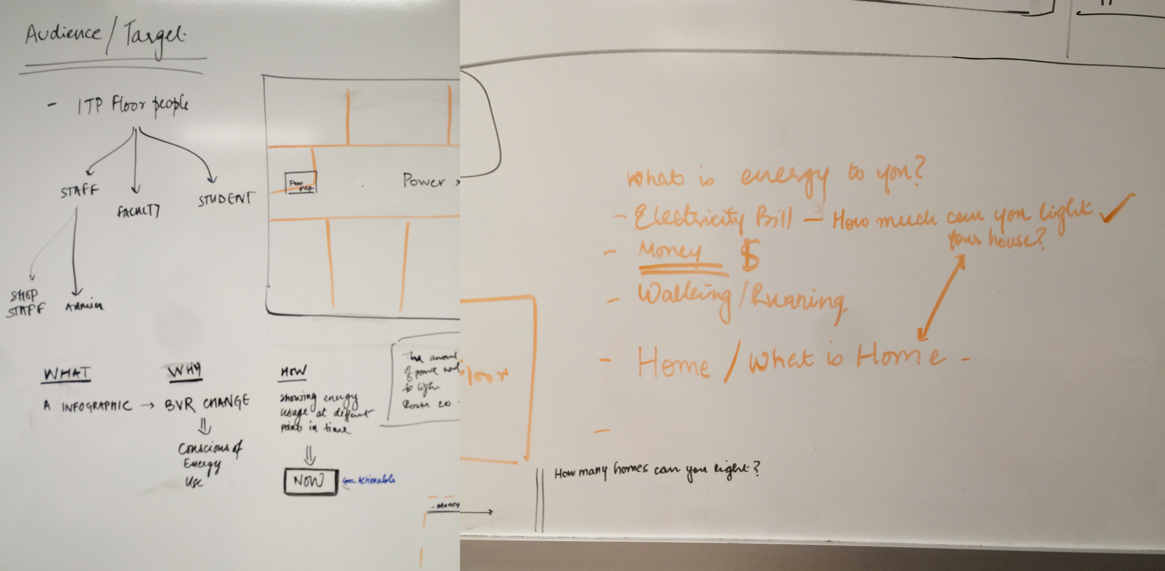 Audience/Target.
- ITP Floor people
STAFF
FACULTY
STUDENT
SHOP
STAFF
Admin
Power
WHAT
A INFOGRAPHIC → BVR CHANGE
WHY
⇓
Conscious of
Energy
Use
HOW
showing energy
usage at different
points in time
⇓
NOW
The amount
of power
to light
Room 20
- Money
what is energy to you?
- Electricity Bill - How much can you light ✓
your house?
- Money $
- Walking/Running.
- Home / What is Home -
-
How many homes can you light?